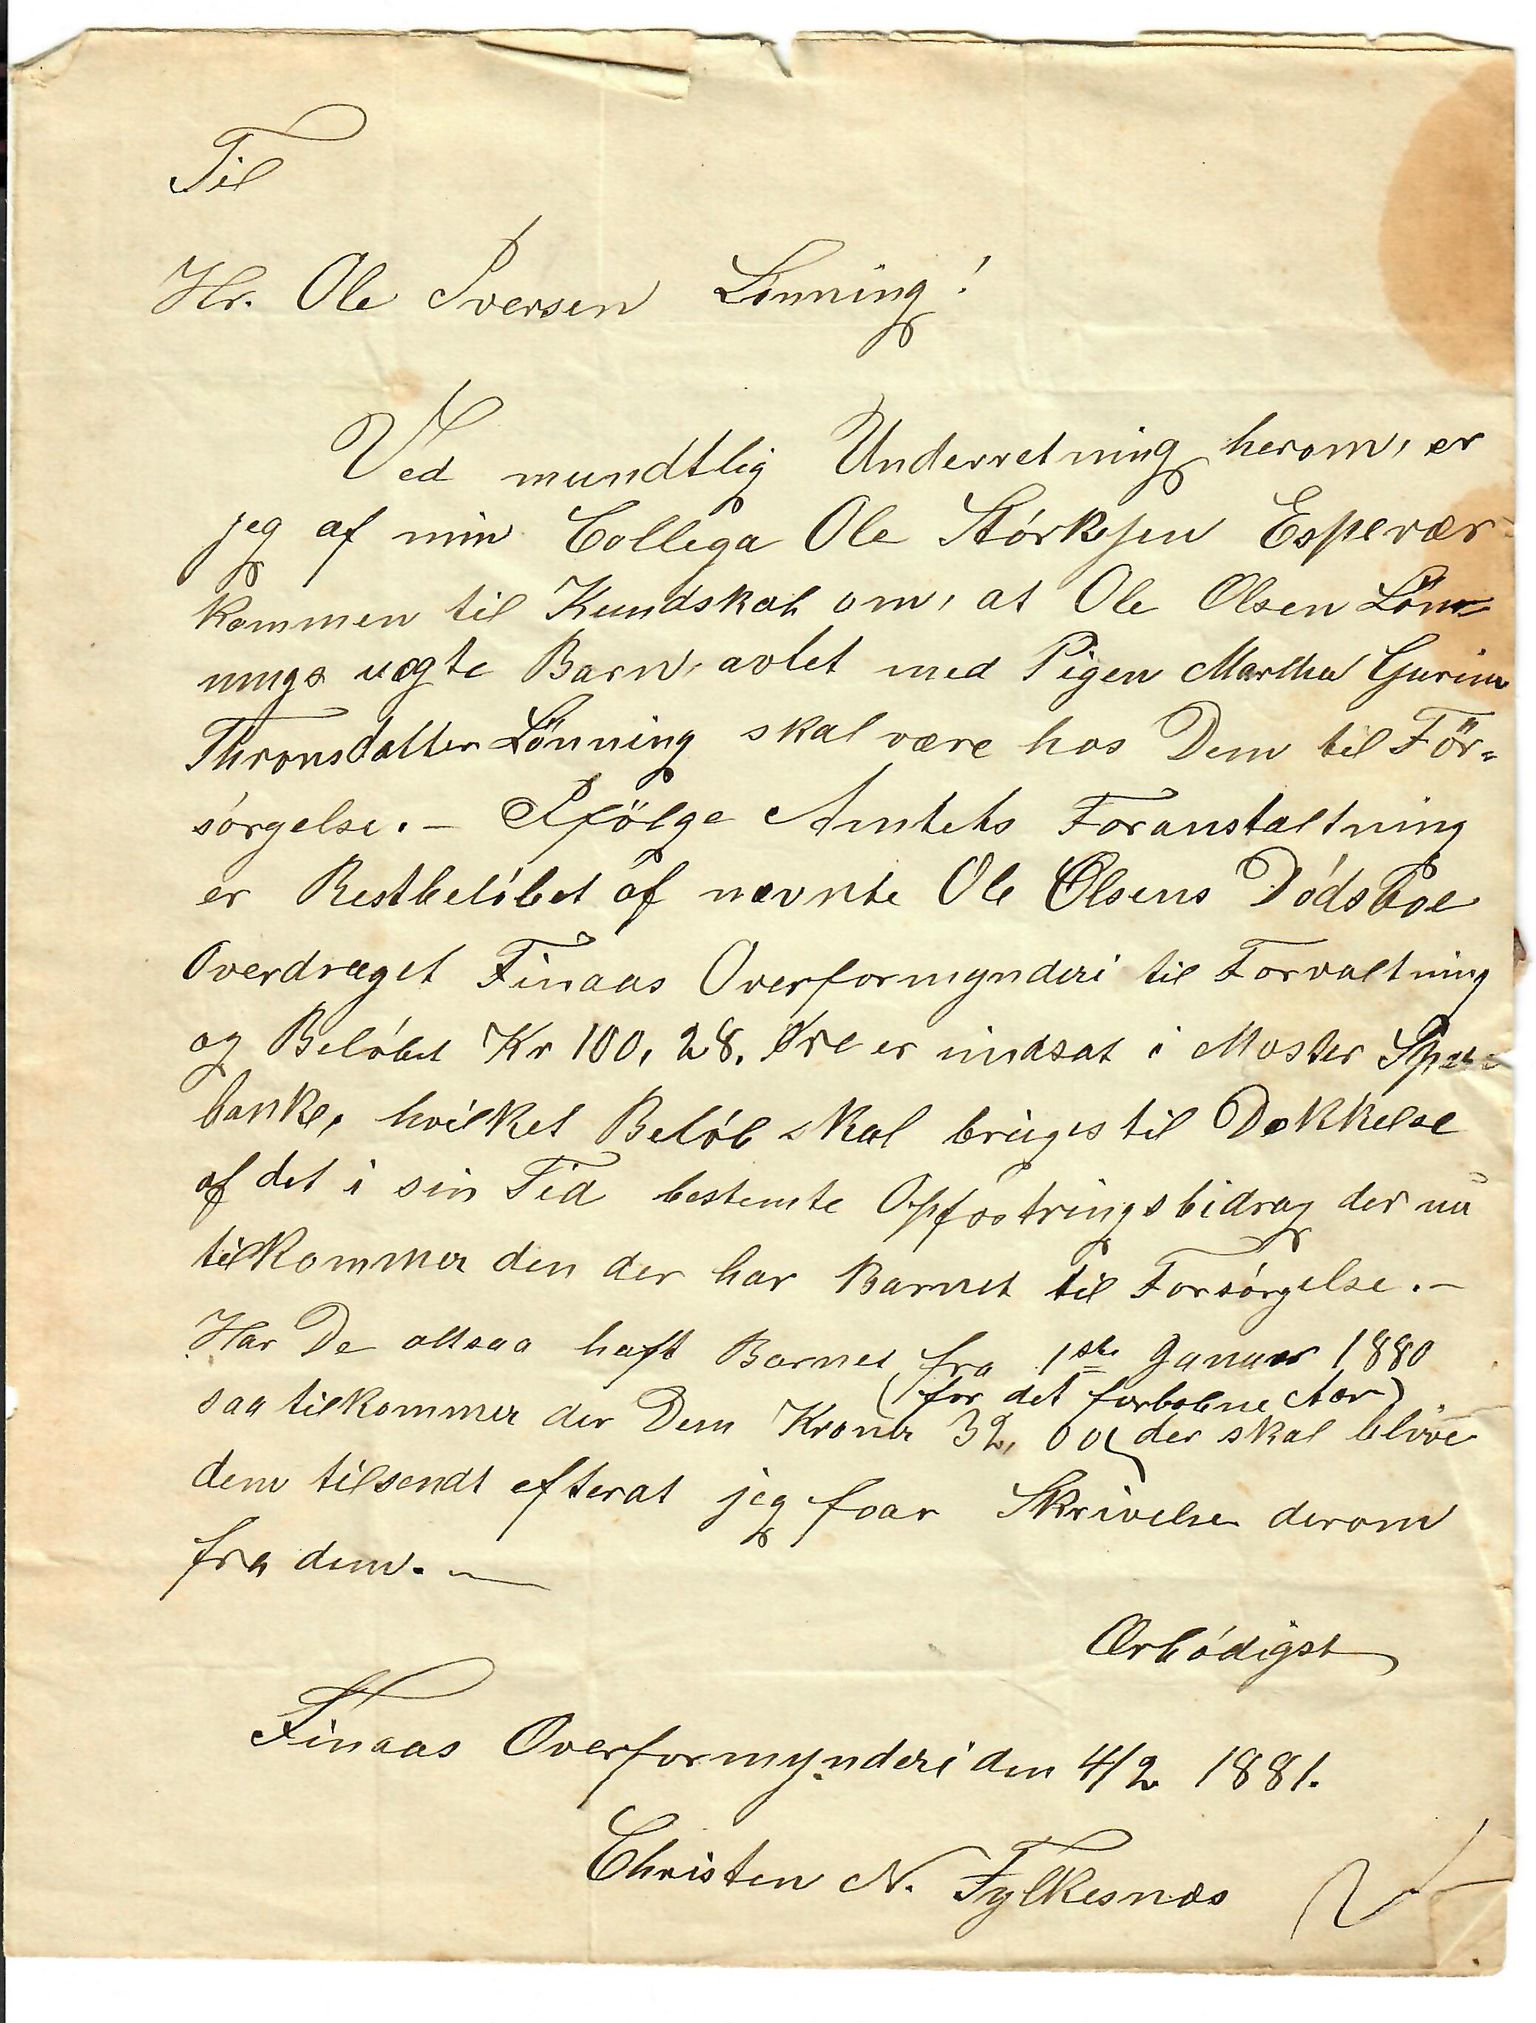 Til
Hr. Ole Iversen Lönning!
Ved mundtlig Underretning herom, er
jeg af min Collega Ole Störksen Espevær
kommen til Kundskab om, at Ole Olsen Lön-
nings uægte Barn, avlet med Pigen Martha Gurine
Thronsdatter Lönning skal være hos Dem til För-
sörgelse. - Ifölge Amtets Foranstaltning
er Restbelöbet af nævnte Ole Olsens Dödsboe
Overdraget Finaas Overformynderi til Forvaltning
og Belöbet Kr 100, 28. Øre er indsat i Moster Spare-
banke, hvilket Belöb skal bruges til Dækkelse
af det i sin Tid bestemte Opfostringsbidrag der nu
tilkommer den der har Barnet til Forsörgelse. -
Har De altsaa haft Barnet fra 1ste Januar 1880
(for det forløbne Aar)
saa tilkommer der Dem Kroner 32, 00 der skal blive
dem tilsendt efterat jeg faar Skrivelse derom
fra dem. -
Ærbödigst
Finaas Overformynderi den 4/2 1881.
Christen N. Fylkesnæs